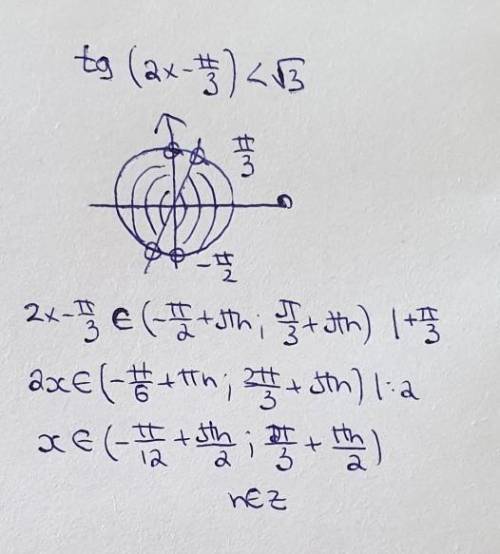 tg (2x - π/3) < √3
π/3
-π/2
2x - π/3 ∈ (-π/2 + πn ; π/3 + πn) | + π/3
2x ∈ (-π/6 + πn ; 2π/3 + πn) | : 2
x ∈ (-π/12 + πn/2 ; π/3 + πn/2)
n ∈ z